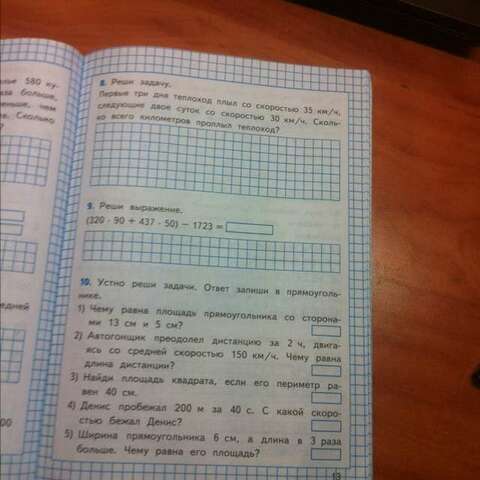 елье 580 ку-
аза больше,
еньше, чем
е. Сколько
?
едней
00
8. Реши задачу.
Первые три дня теплоход плыл со скоростью 35 км/ч,
следующие двое суток со скоростью 30 км/ч. Сколь-
ко всего километров проплыл теплоход?
9. Реши выражение.
(320 · 90 + 437 · 50) − 1723 =
10. Устно реши задачи. Ответ запиши в прямоуголь-
нике.
1) Чему равна площадь прямоугольника со сторона-
ми 13 см и 5 см?
2) Автогонщик преодолел дистанцию за 2 ч, двига-
ясь со средней скоростью 150 км/ч. Чему равна
длина дистанции?
3) Найди площадь квадрата, если его периметр ра-
вен 40 см.
4) Денис пробежал 200 м за 40 с. С какой скоро-
стью бежал Денис?
5) Ширина прямоугольника 6 см, а длина в 3 раза
больше. Чему равна его площадь?
13